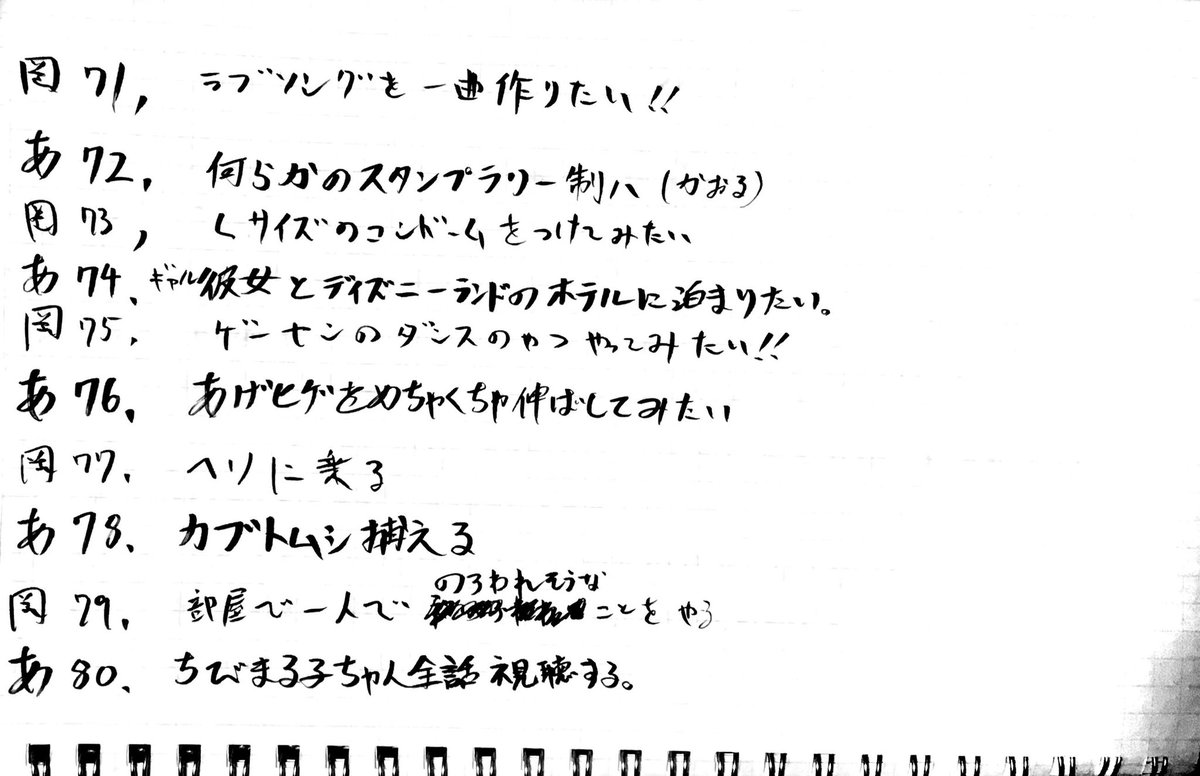 岡 71, ラブソングを一曲作りたい!!
あ 72, 何らかのスタンプラリー制ハ(かおる)
岡 73, Lサイズのコンドームをつけてみたい
あ 74、ギャル彼女とディズニーランドのホテルに泊まりたい。
岡 75, ゲンセンのダンスのやつやってみたい!!
あ 76, あげヒゲをめちゃくちゃ伸ばしてみたい
岡 77, ヘリに乗る
あ 78、カブトムシ捕える
岡 79, 部屋で一人でのろわれそうなことをやる
あ 80、ちびまる子ちゃん全話視聴する。